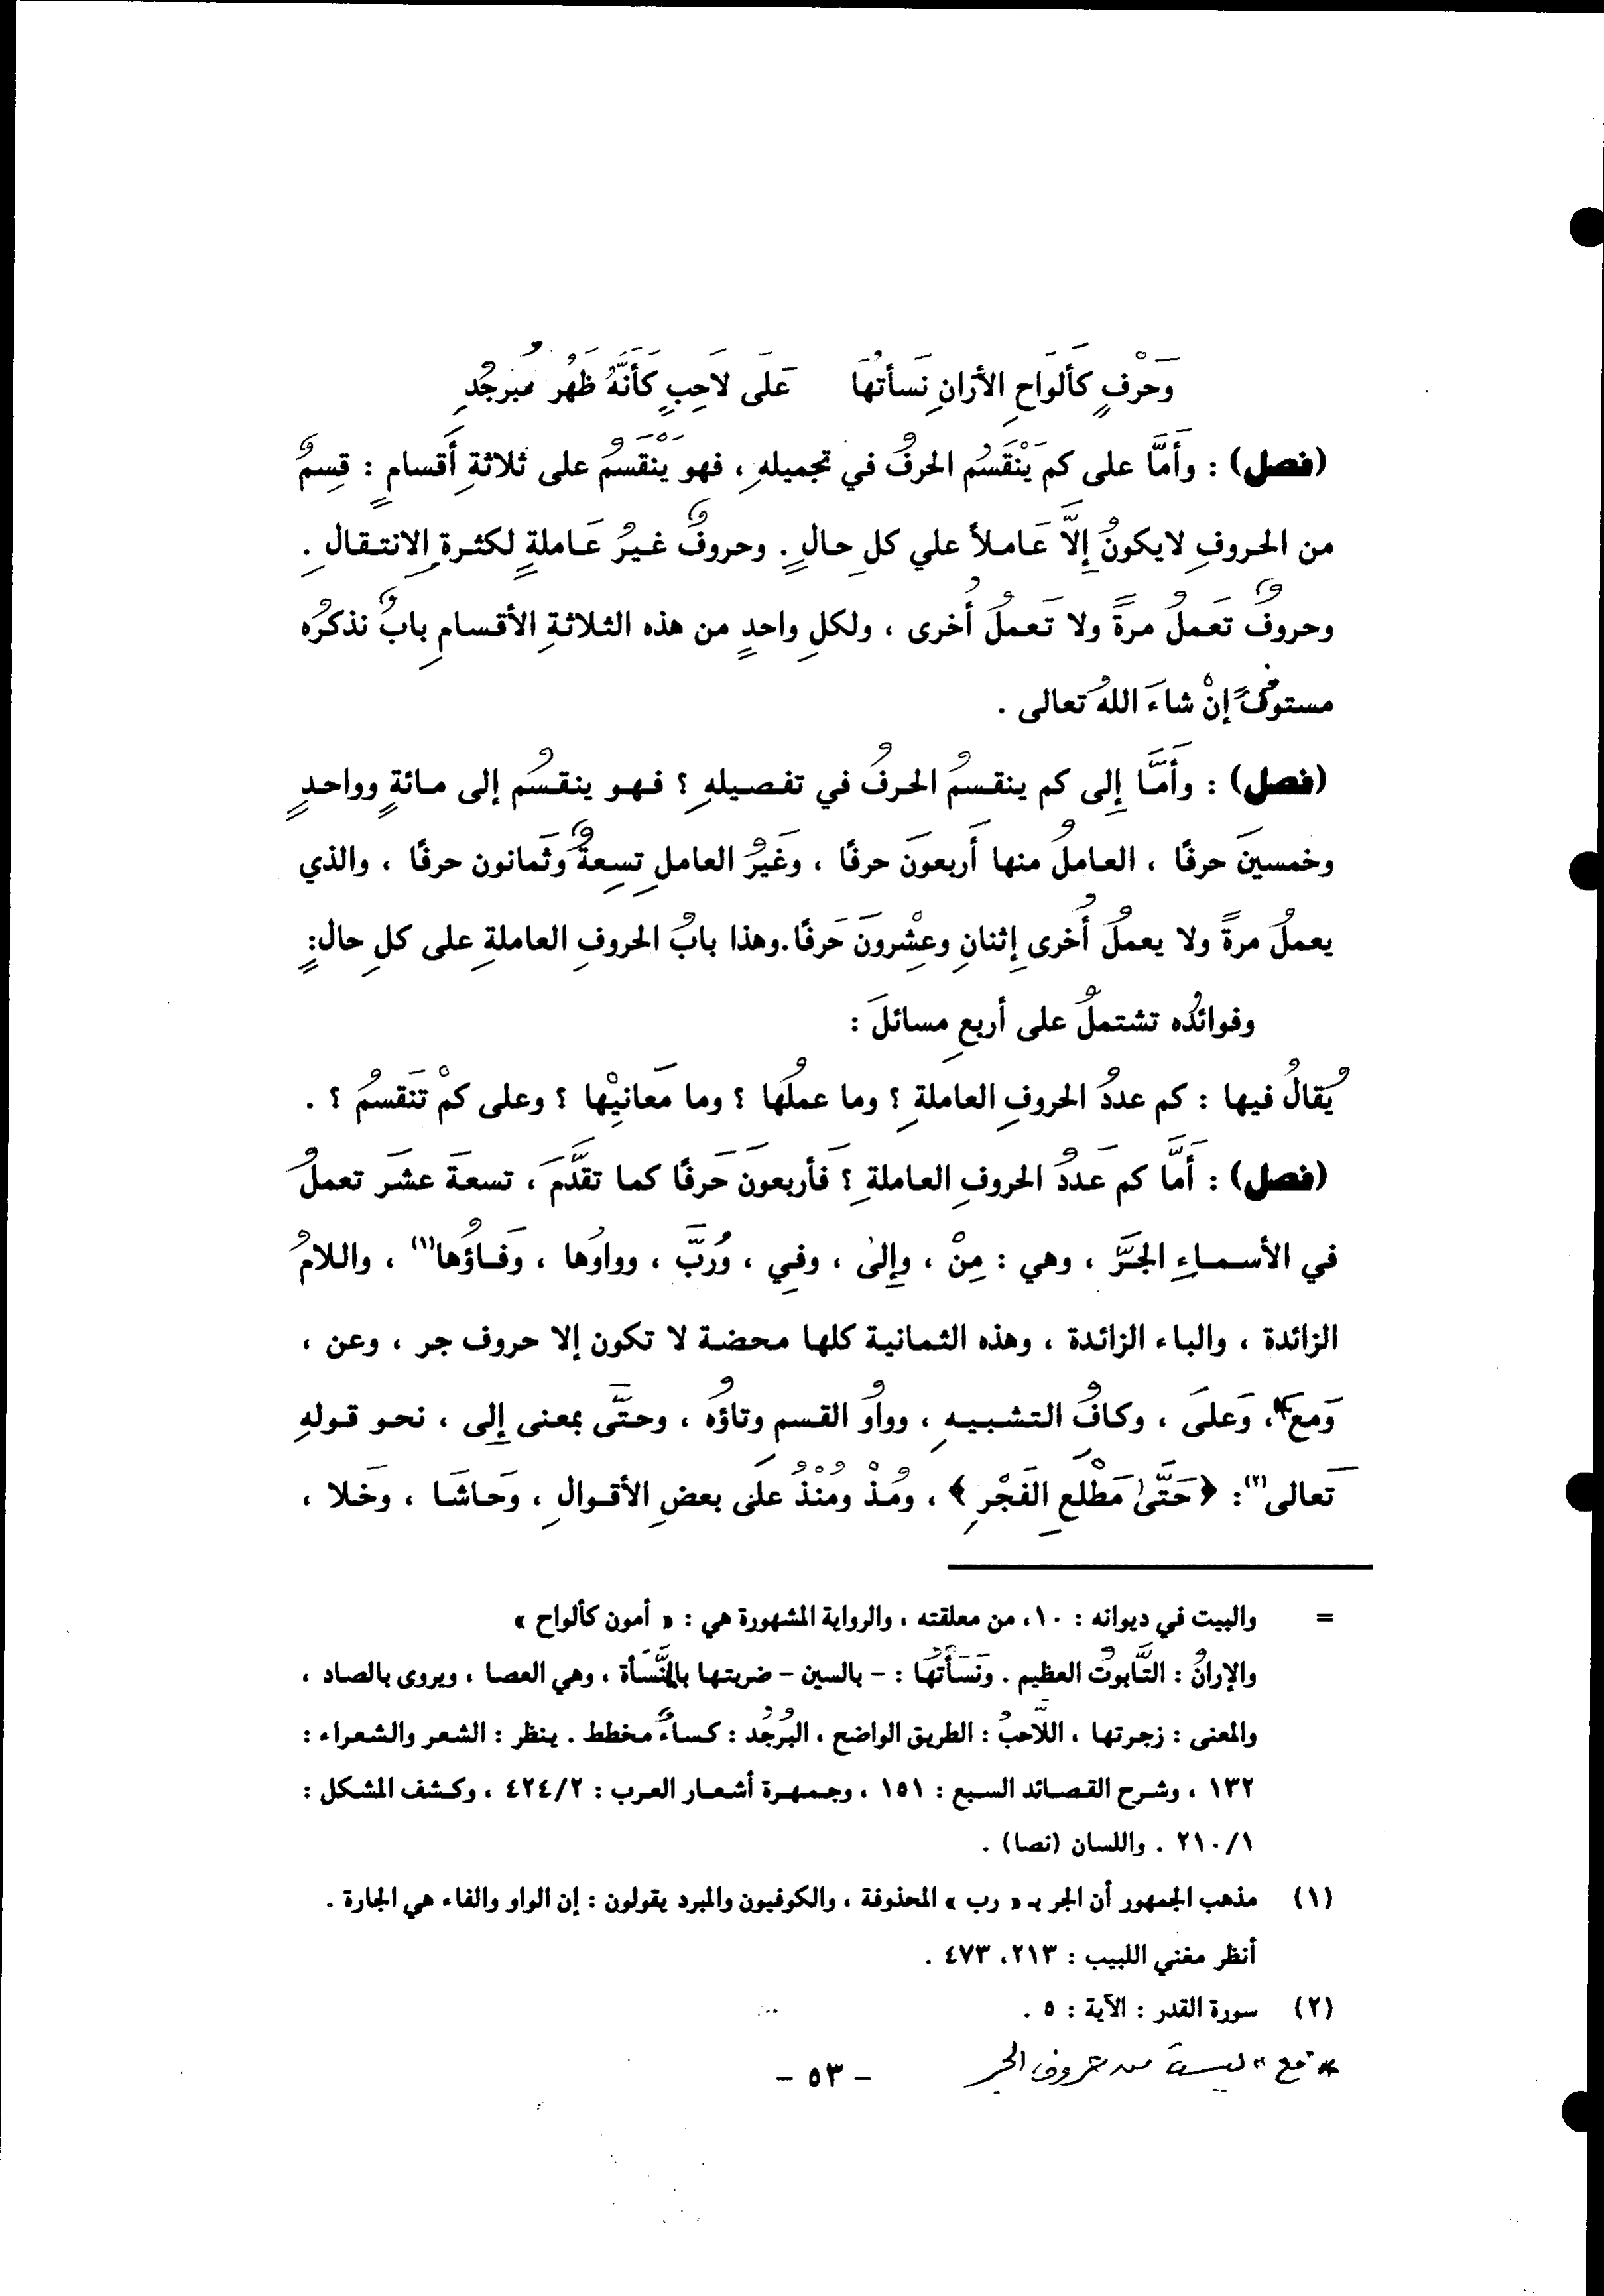 وَحَرْفٍ كَألَوَاحِ الأرانِ نَسأتُهَا    عَلَى لاَحِبٍ كَأَنَّهُ ظَهْر مُبرجُدِ
(فصل) : وأَمَّا على كم يَنْقَسُم الحرفُ في تجميلهِ ، فهو يَنْقَسمُ على ثلاثةِ أَقسامٍ : قِسمٌ
من الحروفِ لايكونُ إِلاَّ عَاملاً علي كلِ حالٍ . وحروفٌ غيرُ عَاملةٍ لكثرةِ الانتقالِ .
وحروفٌ تَعملُ مرةً ولا تَعملُ أُخرى ، ولكلِ واحدٍ من هذه الثلاثةِ الأقسامِ بابٌ نذكرُه
مستوفىً إنْ شاءَ اللهُ تعالى .
(فصل) : وأَمَّا إِلى كم ينقسمُ الحرفُ في تفصيلهِ ؟ فهو ينقسُم إلى مائةٍ وواحدٍ
وخمسينَ حرفًا ، العاملُ منها أَربعونَ حرفًا ، وغَيرُ العاملِ تسِعةٌ وثَمانون حرفًا ، والذي
يعملُ مرةً ولا يعملُ أُخرى إِثنانِ وعِشْرونَ حَرفًا.وهذا بابُ الحروفِ العاملةِ على كلِ حالٍ:
وفوائدُه تشتملُ على أربعِ مسائلَ :
يُقالُ فيها : كم عددُ الحروفِ العاملةِ ؟ وما عملُها ؟ وما مَعانيْها ؟ وعلى كمْ تَنقسمُ ؟ .
(فصل) : أَمَّا كم عَددُ الحروفِ العاملةِ ؟ فأَربعونَ حَرفًا كما تقدَّمَ ، تسعةَ عشَر تعملُ
في الأسماءِ الجَرَّ ، وهي : مِنْ ، وإِلىٰ ، وفي ، ورُبَّ ، وواوُها ، وَفاؤُها(١) ، واللامُ
الزائدة ، والباء الزائدة ، وهذه الثمانية كلها محضة لا تكون إلا حروف جر ، وعن ،
وَمعَ*، وَعلَى ، وكافُ التشبيهِ ، وواوُ القسمِ وتاؤُه ، وحتَّى بمعنى إِلى ، نحو قولهِ
تَعالى(٢): ﴿ حَتَّىٰ مَطْلعِ الفَجْرِ ﴾ ، ومُذْ ومُنْذُ على بعضِ الأقوالِ ، وَحاشَا ، وخَلا ،
=    والبيت في ديوانه : ١٠، من معلقته ، والرواية المشهورة هي : « أمون كألواح »
والإرانُ : التَّابوتُ العظيم . ونَسَأتُهَا : - بالسين - ضربتها بالمِنَّسَأة ، وهي العصا ، ويروى بالصاد ،
والمعنى : زجرتها ، اللاَّحبُ : الطريق الواضح ، البُرجُد : كساءٌ مخطط . ينظر : الشعر والشعراء :
١٣٢ ، وشرح القصائد السبع : ١٥١ ، وجمهرة أشعار العرب : ٤٢٤/٢ ، وكشف المشكل :
٢١٠/١ . واللسان (نصا) .
(١)   مذهب الجمهور أن الجر بـ « رب » المحذوفة ، والكوفيون والمبرد يقولون : إن الواو والفاء هي الجارة .
أنظر مغني اللبيب : ٢١٣، ٤٧٣ .
(٢)   سورة القدر : الآية : ٥ .
* "مع" ليست من حروف الجر
- ٥٣ -